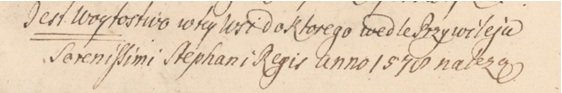 Jest Woytostwo w tey Wsi do ktorego wedle Przywileju
Serenissimi Stephani Regis Anno 1578 należą